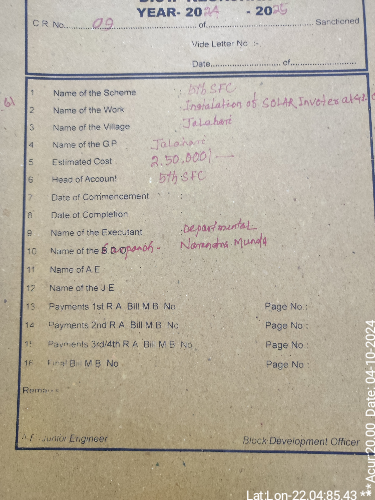 YEAR- 2024 - 2025
C.R. No. 09 of Sanctioned
Vide Letter No :-
Date of
1 Name of the Scheme : 5th SFC
2 Name of the Work : of SOLAR
3 Name of the Village :
4 Name of the G.P.
5 Estimated Cost : 2.50.000/-
6 Head of Account : 5th SFC
7 Date of Commencement :
8 Date of Completion
9 Name of the Executant : Departmental
10 Name of the Munda
11 Name of A.E
12 Name of the J.E
13 Payments 1st R.A. Bill M.B. No Page No :
14 Payments 2nd R.A. Bill M.B. No Page No :
15 Payments 3rd/4th R.A. Bill M.B. No Page No :
16 Final Bill M.B. No Page No :
Junior Engineer Block Development Officer
Lat:Lon-22.04:85.43 *** Acur:20.00 Date: 04-10-2024